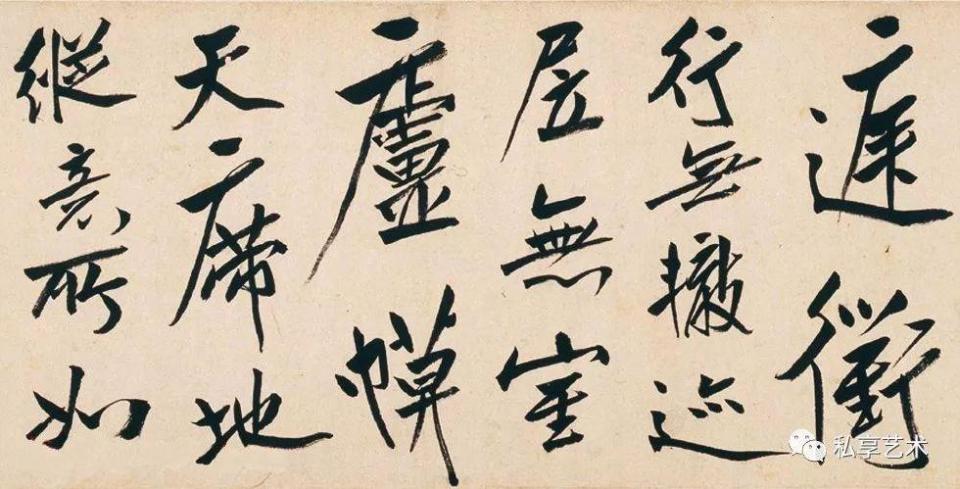 庭衢
行無轍迹
居無室
廬幙
天席地
縱意所如
私享艺术